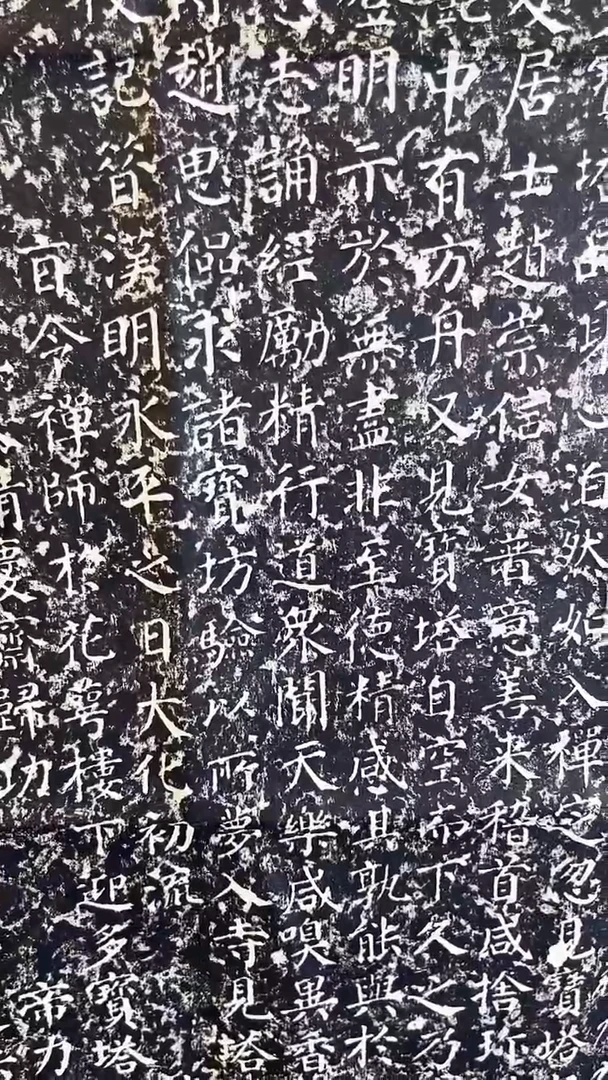 塔品身心泊然如入禪定忽見寶塔
居士趙崇信女普意善來稽首咸捨珍
中有方舟又見寶塔自空而下久之乃
明示於無盡非至德精感其孰能與於
志誦經勵精行道眾聞天樂咸嗅異香
趙思侶求諸寶坊驗以所夢入寺見塔
記昔漢明永平之日大化初流
宣令禪師於花萼樓下迎多寶塔
慶齋歸功 帝力